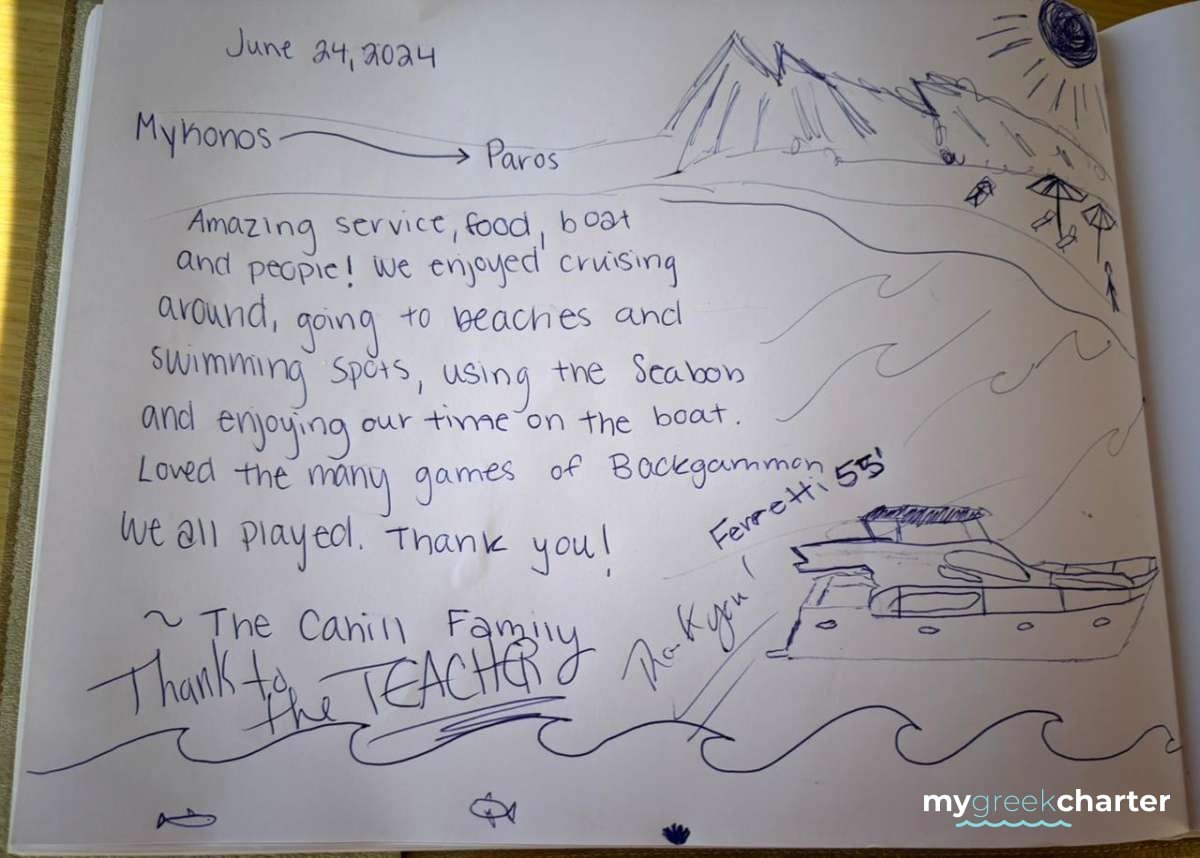 June 24, 2024
Mykonos → Paros
Amazing service, food, boat
and people! We enjoyed cruising
around, going to beaches and
swimming spots, using the Seabob
and enjoying our time on the boat.
Loved the many games of Backgammon
we all played. Thank you!
~ The Cahill Family
Thank to
the TEACHER
Ferretti 55'
mygreekcharter